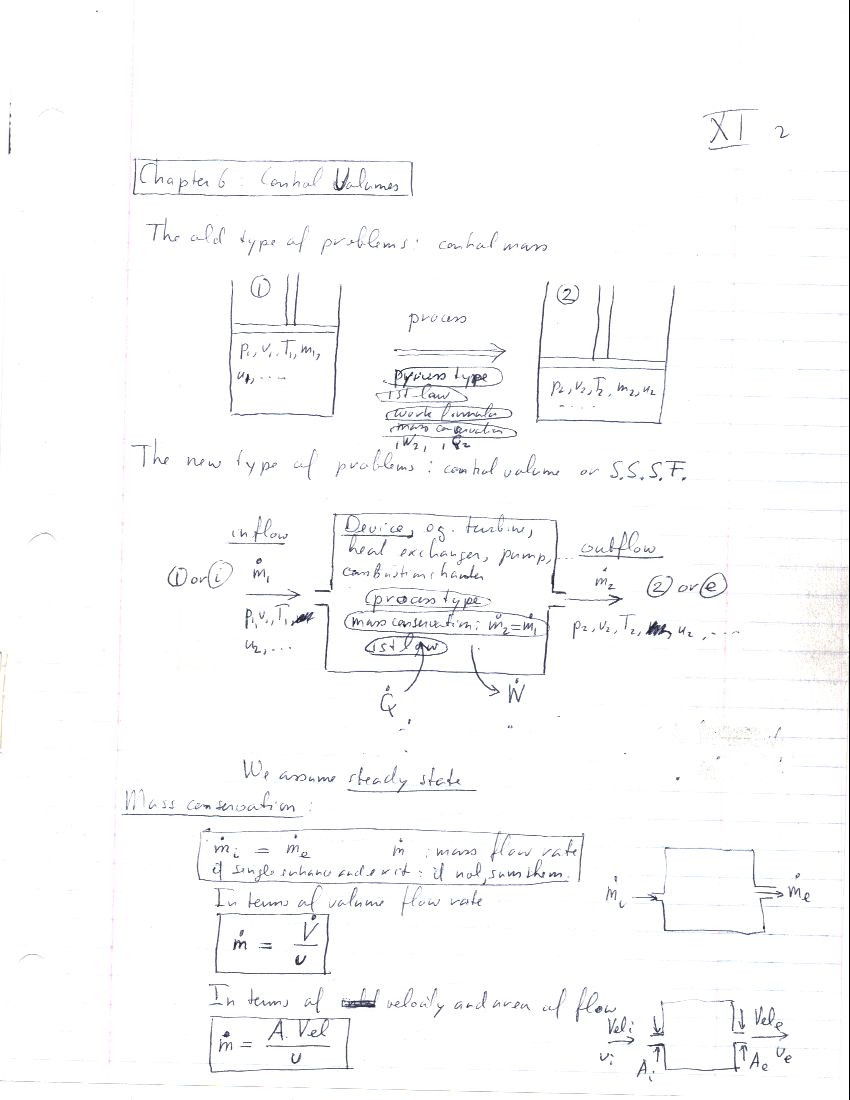 XI 2
Chapter 6 : Control Volumes
The old type of problems: control mass
① ②
process
p₁, v₁, T₁, m₁,
u₁, ....
process type
1st law
work formula
mass conservation
₁W₂, ₁Q₂
p₂, v₂, T₂, m₂, u₂
.....
The new type of problems : control volume or S.S.S.F.
inflow
① or ⓘ ṁ₁
p₁, v₁, T₁,
u₂, ...
Device, eg. turbine,
heat exchanger, pump,
combustion chamber
process type
mass conservation: ṁ₂ = ṁ₁
1st law
Q̇ Ẇ
outflow
ṁ₂ ② or ⓔ
p₂, v₂, T₂, u₂, ....
We assume steady state
Mass conservation :
ṁᵢ = ṁₑ ṁ : mass flow rate
if single entrance and exit : if not, sum them.
ṁᵢ ṁₑ
In terms of volume flow rate
ṁ = V̇ / v
In terms of velocity and area of flow
ṁ = A. Vel / v
Velᵢ Velₑ
vᵢ Aᵢ Aₑ vₑ